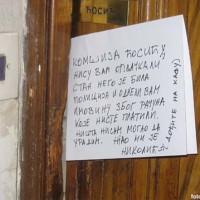 ЋОСИЋ
КОМШИЈА ЋОСИЋУ,
НИСУ ВАМ ОПЉАЧКАЛИ
СТАН НЕГО ЈЕ БИЛА
ПОЛИЦИЈА И ОДНЕЛА ВАМ
ИМОВИНУ ЗБОГ РАЧУНА
КОЈЕ НИСТЕ ПЛАТИЛИ.
НИШТА НИСАМ МОГАО ДА
УРАДИМ. ЖАО МИ ЈЕ
НИКОЛИЋ
ДОЂИТЕ НА КАФУ)
foto